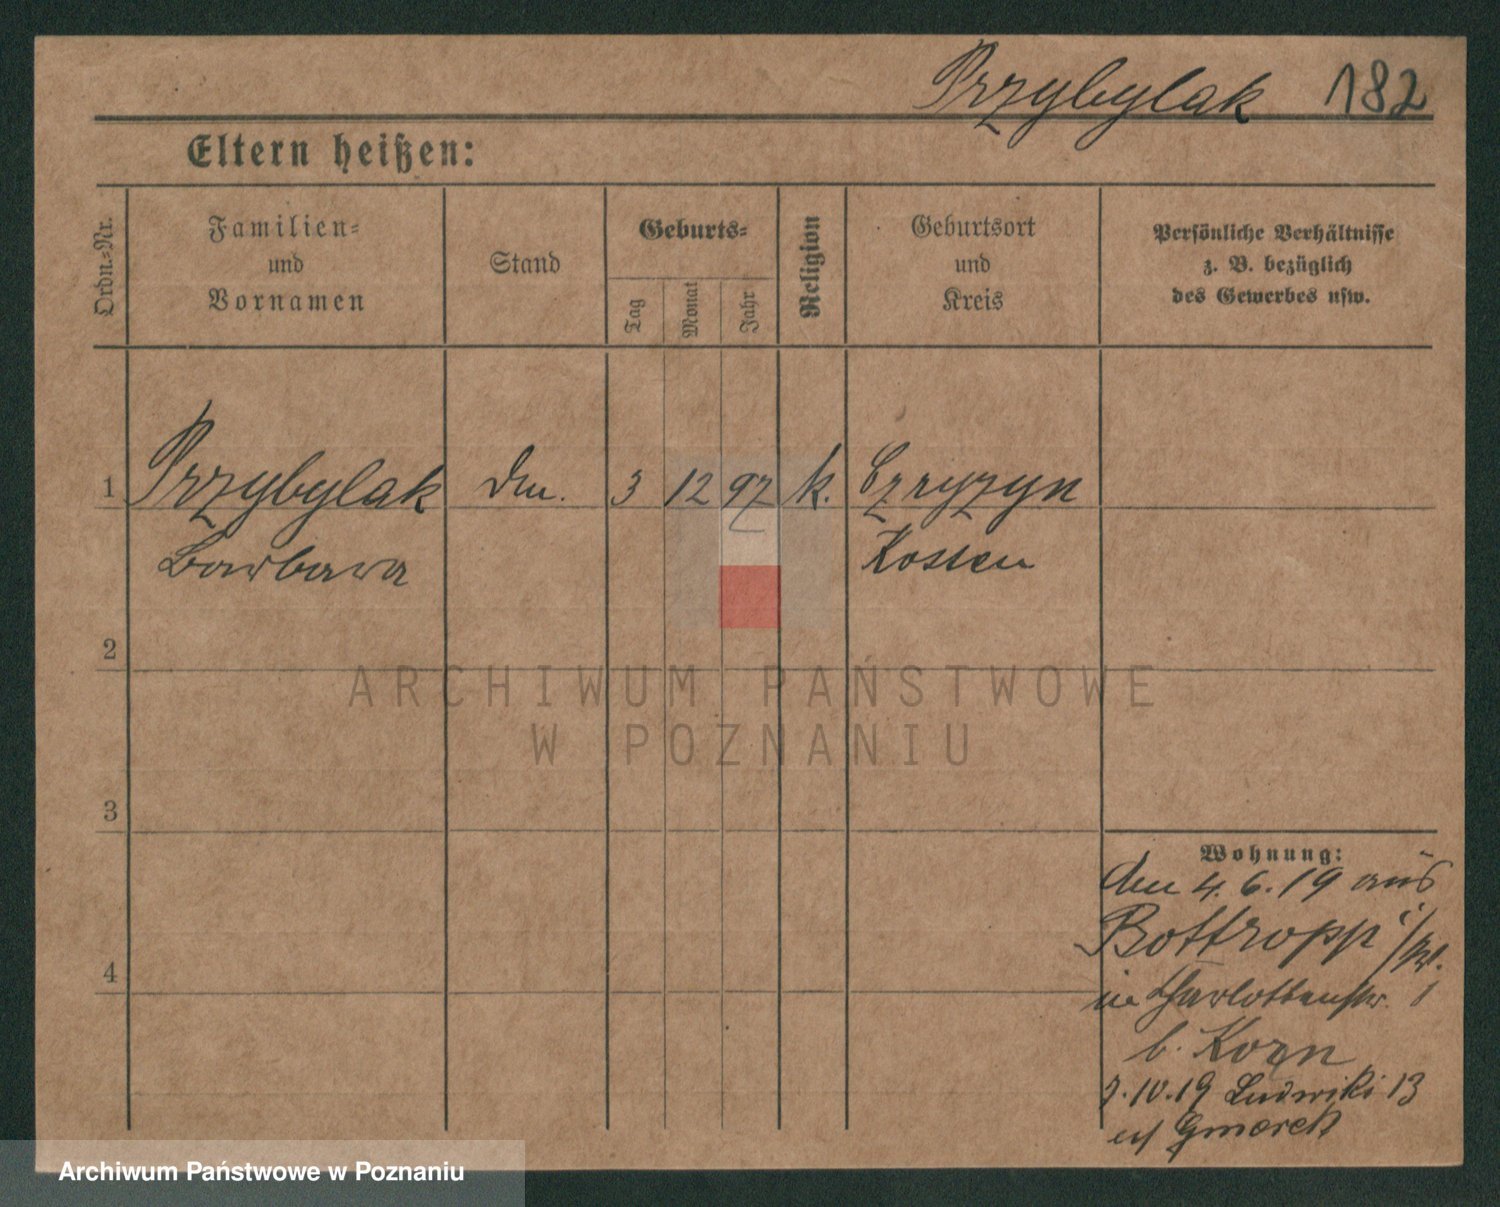 Przybylak 182
Eltern heißen:
Ordn.-Nr.
Familien-
und
Vornamen
Stand
Geburts-
Tag
Monat
Jahr
Religion
Geburtsort
und
Kreis
Persönliche Verhältnisse
z. B. bezüglich
des Gewerbes usw.
1 Przybylak 3 12 97 k. Czryzyn
Barbara Kosten
2
3
4
Wohnung:
den 4. 6. 19 aus
Bottropp
in Charlottenstr. 1
b. Korn
10.19 Ludwiki 13
ARCHIWUM PAŃSTWOWE
W POZNANIU
Archiwum Państwowe w Poznaniu